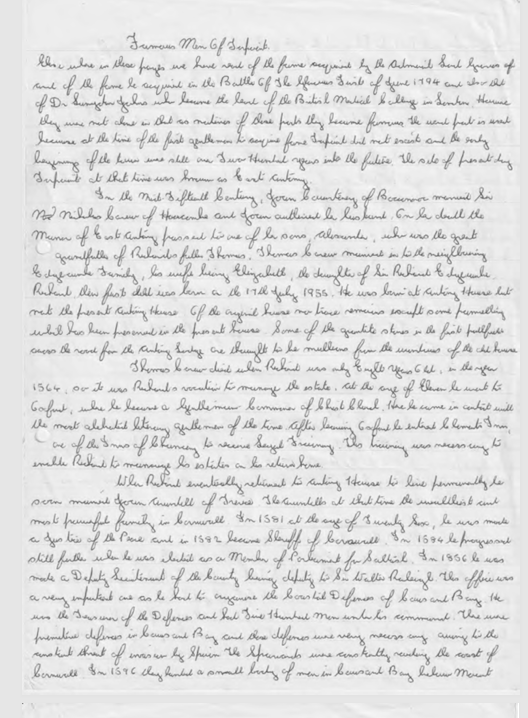 Famous Men Of Torpoint.
Else where in these pages we have read of the fame acquired by the Admirals Lord Graves of
and of the fame he acquired in the Battle Of The Glorious First of June 1794 and also that
of Dr Livingston who became the head of the British Medical College in London. However
they were not alone in that as natives of these parts they became famous. The word part is used
because at the time of the first gentleman to acquire fame Torpoint did not exist and the early
beginning of the town was still one Two Hundred years into the future. The site of present day
Torpoint at that time was known as East Antony.
In the Mid Fifteenth Century, Joan Courtenay of Boconnoc married Sir
Nicholas Carew of Haccombe and Joan outlived her husband. On her death the
Manor of East Antony passed to one of her sons, Alexander, who was the great
grandfather of Richards father Thomas. Thomas Carew married in to the neighbouring
Edgcumbe Family, his wife being Elizabeth, the daughter of Sir Richard Edgcumbe.
Richard, their first child was born on the 17th July 1955. He was born at Antony House but
not the present Antony House. Of the original house no trace remains except some panelling
which has been preserved in the present house. Some of the granite stones in the first
across the road from the Antony are thought to be mullions from the windows of the old house
Thomas Carew died when Richard was only Eight Years Old, in the year
1564, so it was Richard's vocation to manage the estate. At the age of Eleven he went to
Oxford, where he became a Gentleman Commoner of Christ Church. Here he came in contact with
the most celebrated literary gentlemen of the time. After leaving Oxford he entered Clements Inn,
one of the Inns of Chancery to receive Legal Training. This training was necessary to
enable Richard to manage his estates on his return home.
When Richard eventually returned to Antony House to live permanently he
soon married Joan Arundell of Trerice. The Arundells at that time the wealthiest and
most powerful family in Cornwall. In 1581 at the age of Twenty Six, he was made
a Justice of the Peace and in 1582 became Sheriff of Cornwall. In 1584 he progressed
still further when he was elected as a Member of Parliament for Saltash. In 1856 he was
made a Deputy Lieutenant of the County being deputy to Sir Walter Raleigh. This office was
a very important one as he had to organise the Coastal Defences of Cawsand Bay. He
was the Treasurer of the Defences and had Five Hundred Men under his command. There were
primitive defences in Cawsand Bay and these defences were very necessary owing to the
constant threat of invasion by Spain. The Spaniards were constantly raiding the coast of
Cornwall. In 1596 they landed a small body of men in Cawsand Bay below Mount